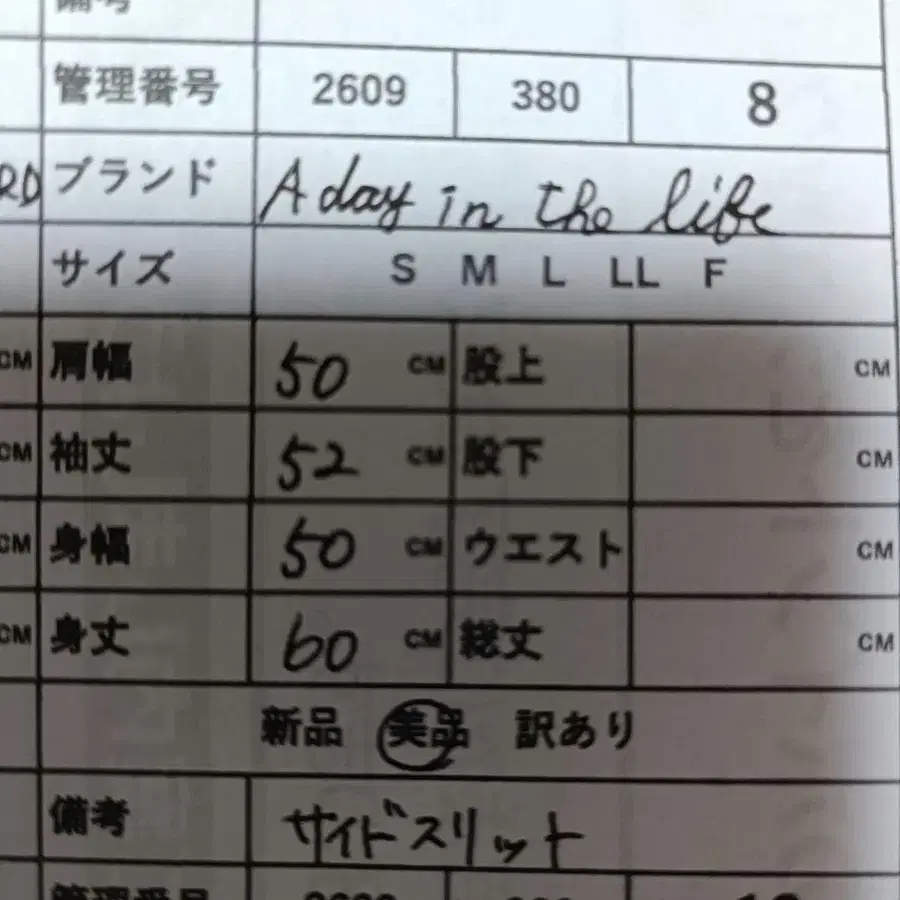 備考
管理番号 2609 380 8
RD ブランド A day in the life
サイズ S M L LL F
CM 肩幅 50 CM 股上 CM
CM 袖丈 52 CM 股下 CM
CM 身幅 50 CM ウエスト CM
CM 身丈 60 CM 総丈 CM
新品 美品 訳あり
備考 サイドスリット
管理番号